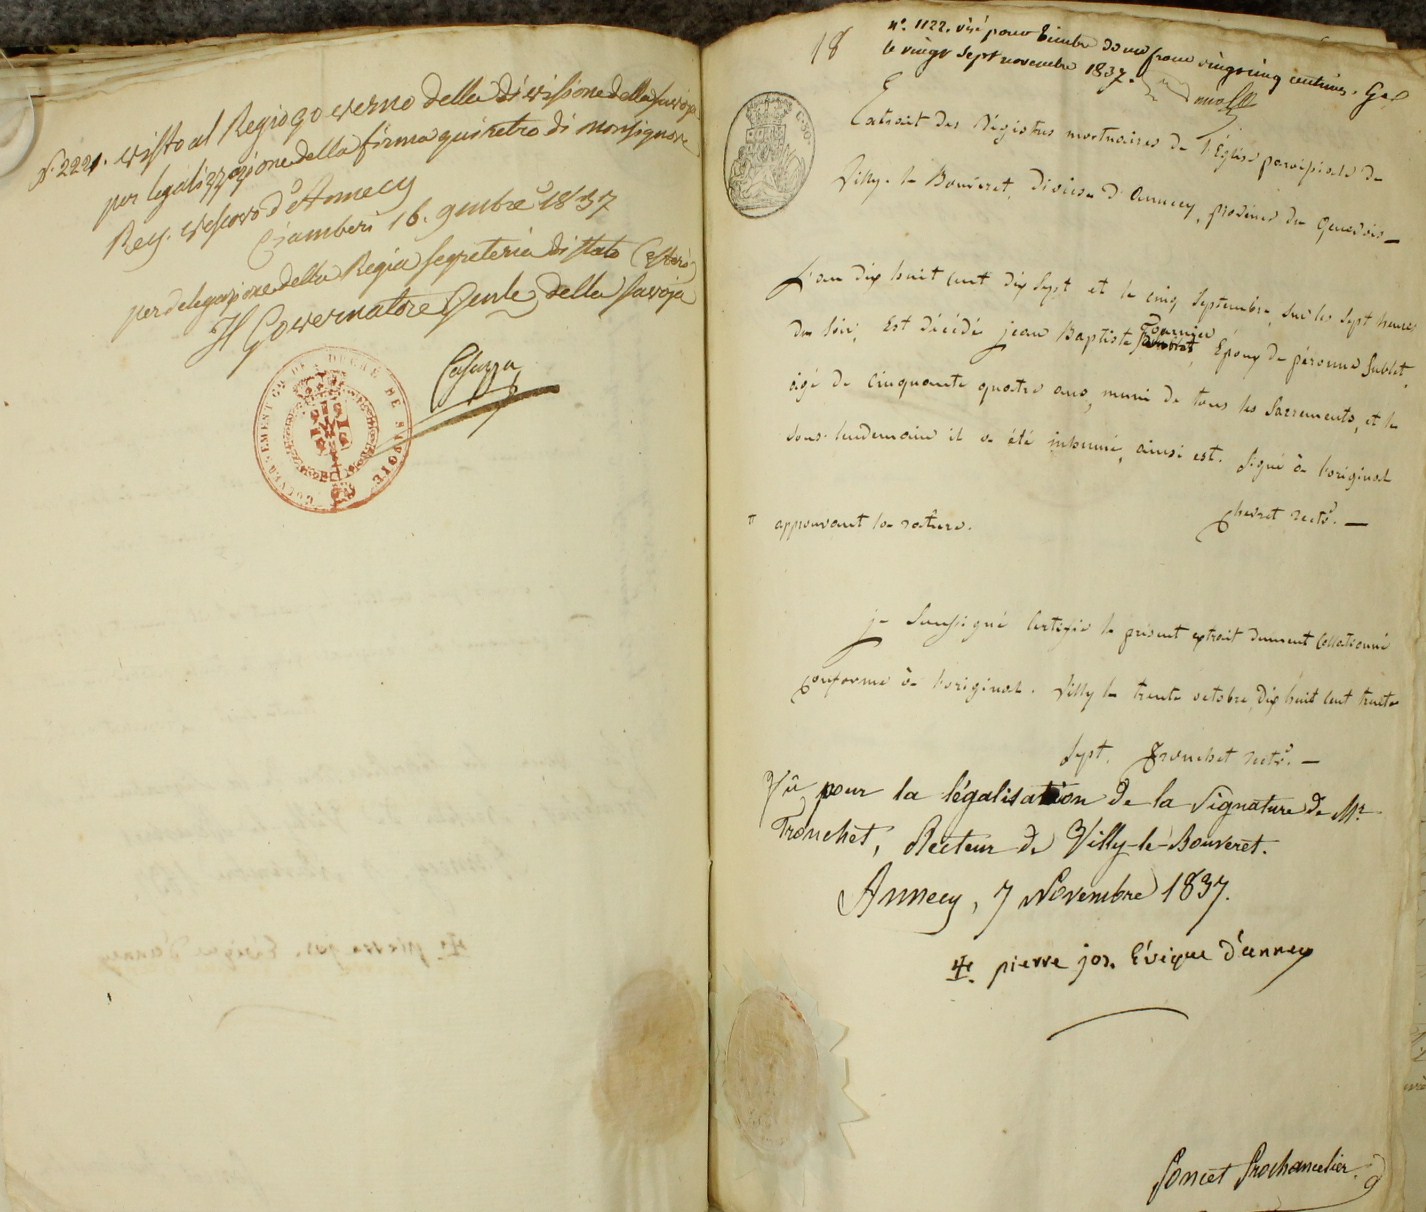 N° 2221. Visto al Regio Governo della divisione della Savoja
per legalizzazione della firma quiretro di Monsignore
Rev. Vescovo d'Annecy
Ciamberi 16. 9mbre 1837
per delegazione della Regia Segreteria di Stato (Esteri)
Il Governatore Genle della Savoja
Casazza
GOUVERNEMENT GD DU DUCHÉ DE SAVOIE
18
N° 1122. visé pour timbre franc vingt cinq centimes. G
le vingt sept novembre 1837.
Extrait des Régistres mortuaires de l'Église paroissiale de
Villy-le Bouveret, Diocèse d'Annecy, province du Genevois —
L'an dix huit cent dix sept et le cinq Septembre, sur les sept heures
du soir, est décédé jean Baptiste Tournier, Époux de péronne Sublet,
âgé de cinquante quatre ans, muni de tous les Sacrements, et le
sous-lendemain il a été inhumé, ainsi est. Signé à l'original
Chevret rectr. —
approuvant la rature.
je Soussigné Certifie le présent extrait dument Collationné
Conforme à l'original. Villy le trente octobre, dix huit cent trente
Sept. Tronchet rectr. —
Vû pour la légalisation de la Signature de Mr
Tronchet, Recteur de Villy-le-Bouveret.
Annecy, 7 Novembre 1837.
pierre jos. Evêque d'annecy
Poncet Prochancelier